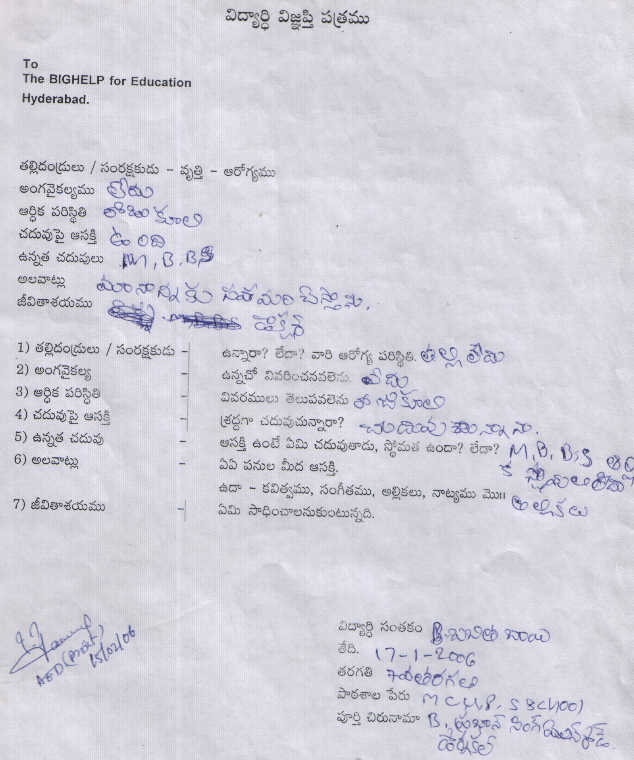 విద్యార్థి విజ్ఞప్తి పత్రము
To
The BIGHELP for Education
Hyderabad.
తల్లిదండ్రులు / సంరక్షకుడు - వృత్తి - ఆరోగ్యము
అంగవైకల్యము లేదు
ఆర్ధిక పరిస్థితి కూలి
చదువుపై ఆసక్తి ఉంది
ఉన్నత చదువులు M, B, B S
అలవాట్లు మా నాన్నకు
జీవితాశయము డాక్టర్
1) తల్లిదండ్రులు / సంరక్షకుడు - ఉన్నారా? లేదా? వారి ఆరోగ్య పరిస్థితి. తల్లి లేదు
2) అంగవైకల్య - ఉన్నచో వివరించనవలెను. లేదు
3) ఆర్ధిక పరిస్ధితి - వివరములు తెలుపవలెను
4) చదువుపై ఆసక్తి - శ్రద్దగా చదువుచున్నారా? చదువుకుంటున్నాను.
5) ఉన్నత చదువు - ఆసక్తి ఉందే ఏమి చదువుతాడు, స్తోమత ఉందా? లేదా? M, B, B, S
6) అలవాట్లు - ఏఏ పనుల మీద ఆసక్తి.
ఉదా - కవిత్వము, సంగీతము, అల్లికలు, నాట్యము మొ॥ అల్లికలు
7) జీవితాశయము - ఏమి సాధించాలనుకుంటున్నది.
విద్యార్ధి సంతకం B. బాయి
తేది. 17-1-2006
తరగతి 7వ తరగతి
పాఠశాల పేరు M C U.P. SCHOOl
పూర్తి చిరునామా B, సింగ్
15/02/06